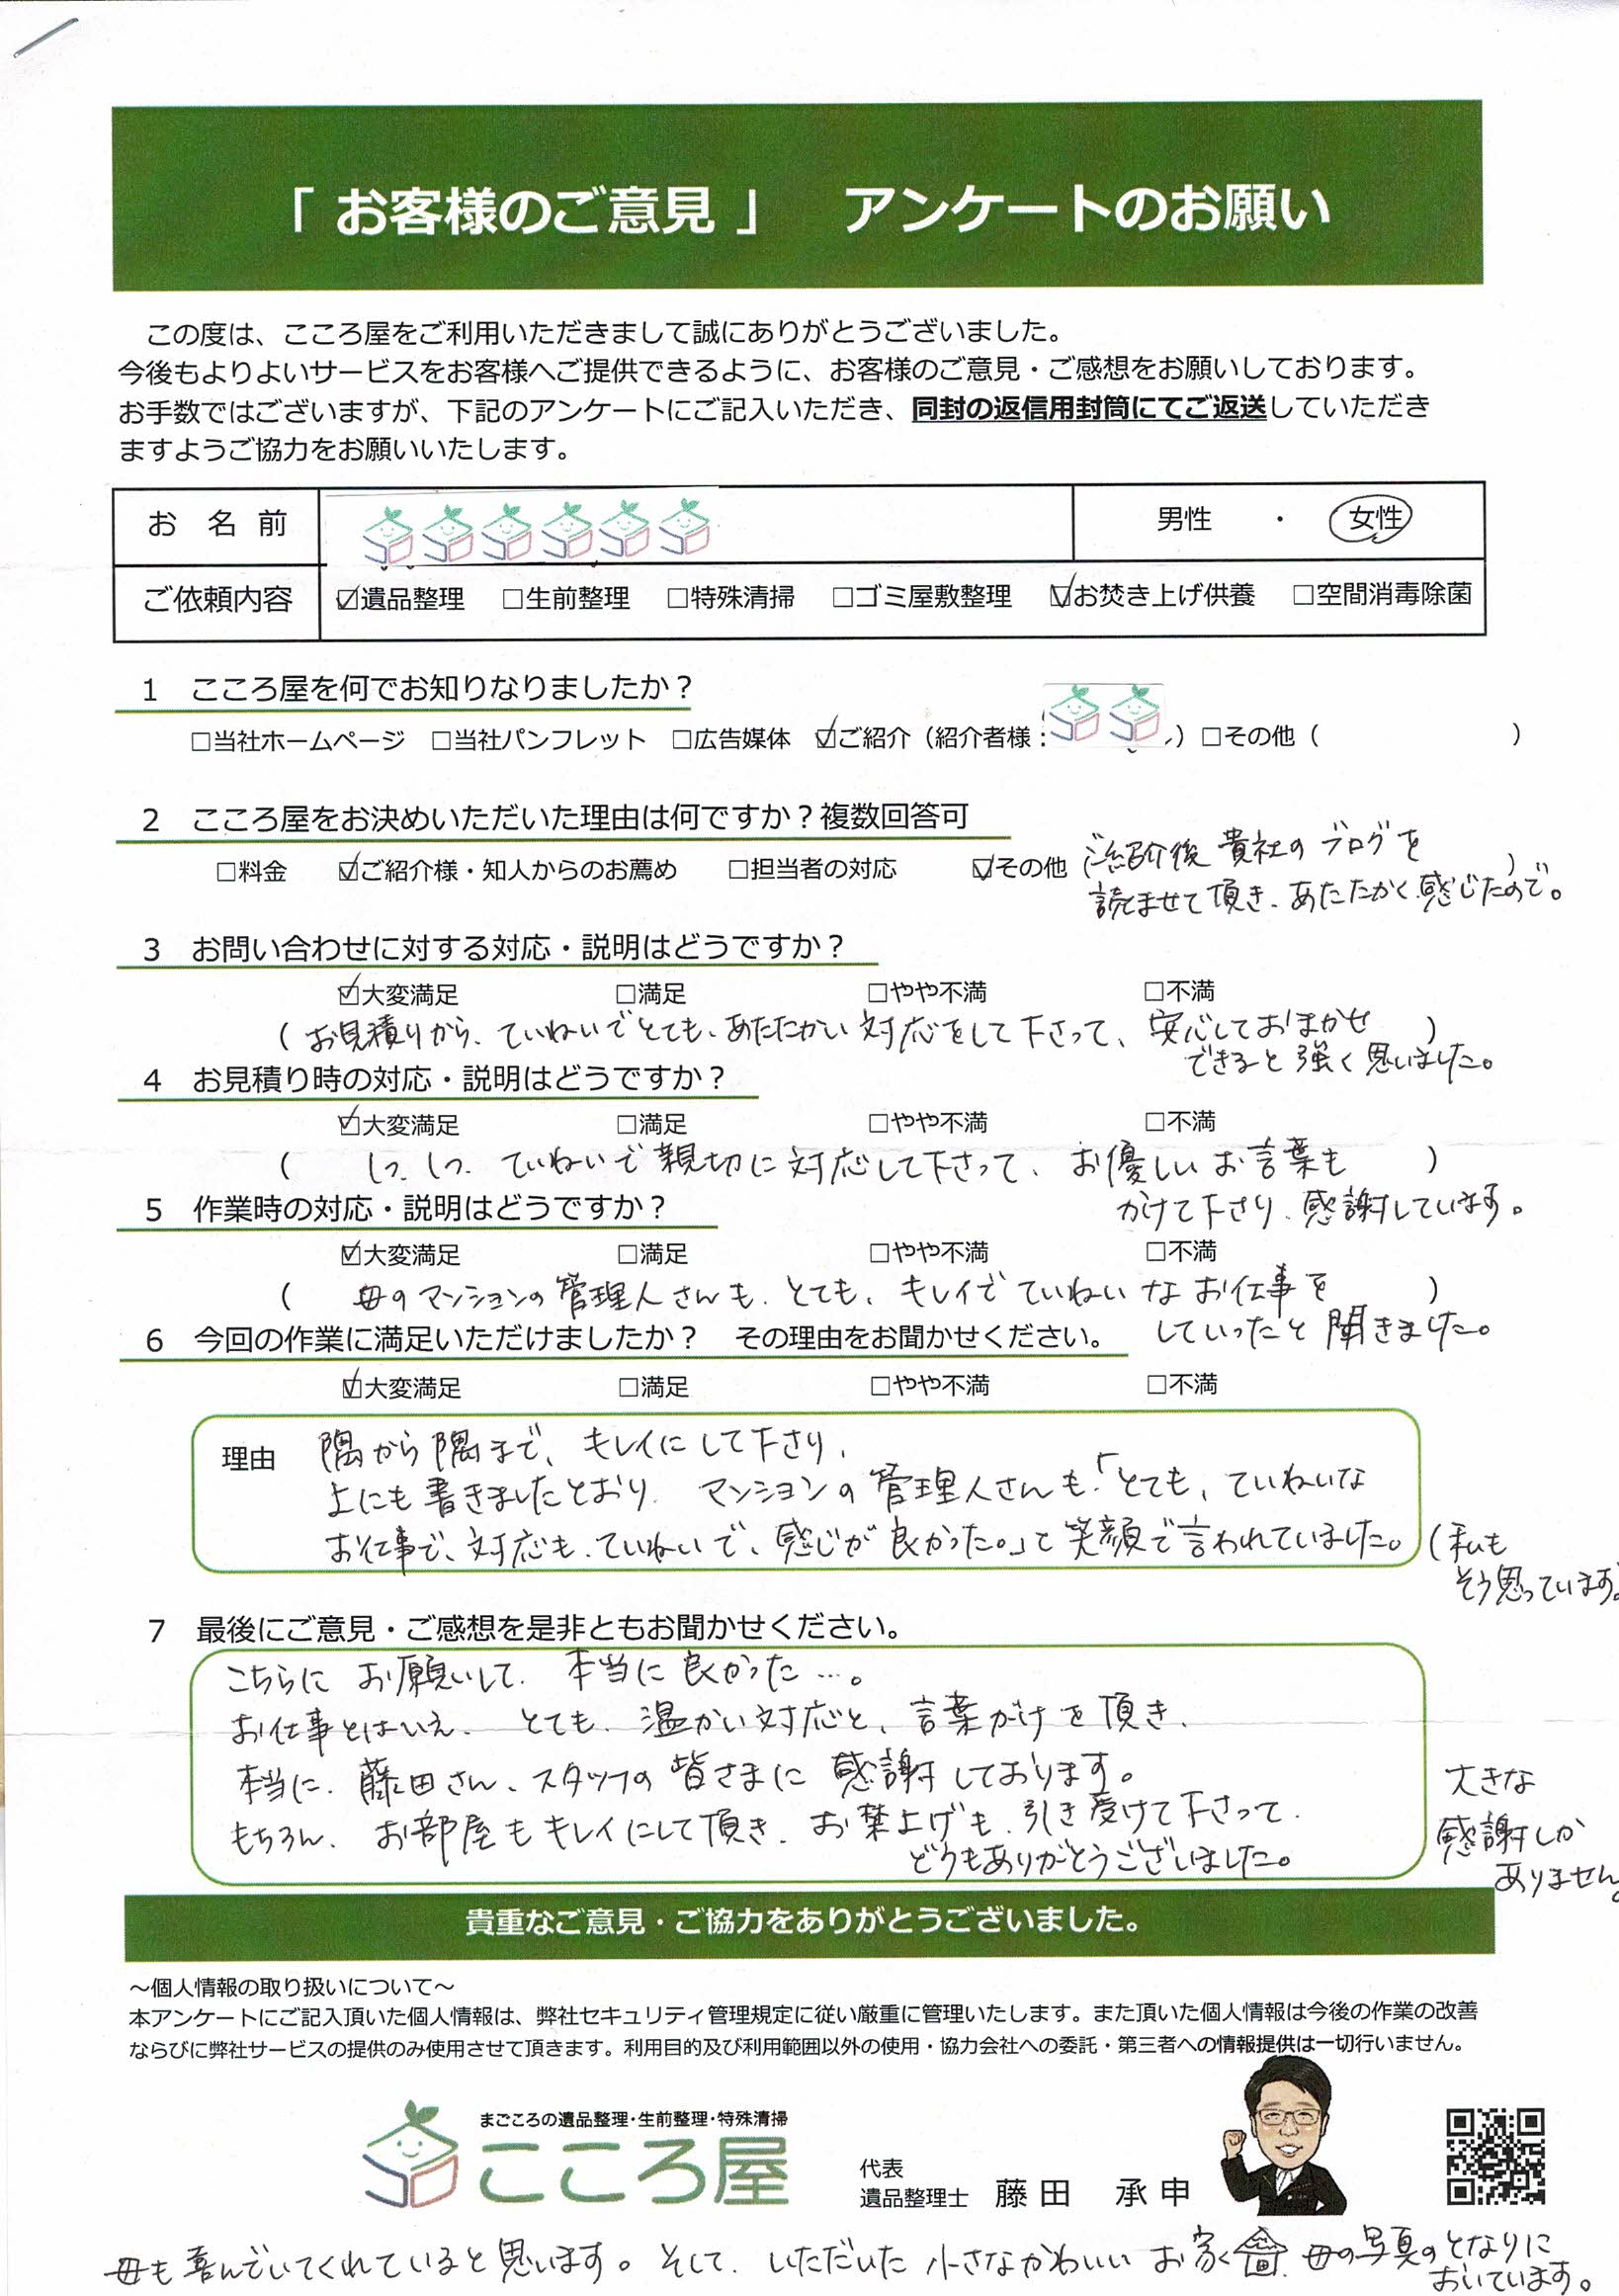 「 お客様のご意見 」　アンケートのお願い
この度は、こころ屋をご利用いただきまして誠にありがとうございました。
今後もよりよいサービスをお客様へご提供できるように、お客様のご意見・ご感想をお願いしております。
お手数ではございますが、下記のアンケートにご記入いただき、同封の返信用封筒にてご返送していただき
ますようご協力をお願いいたします。
お 名 前　男性 ・ 女性
ご依頼内容　☑遺品整理　□生前整理　□特殊清掃　□ゴミ屋敷整理　☑お焚き上げ供養　□空間消毒除菌
1　こころ屋を何でお知りなりましたか？
□当社ホームページ　□当社パンフレット　□広告媒体　☑ご紹介（紹介者様：　）□その他（　）
2　こころ屋をお決めいただいた理由は何ですか？複数回答可
□料金　☑ご紹介様・知人からのお薦め　□担当者の対応　☑その他（ご紹介後 貴社の ブログを
読ませて頂き、あたたかく感じたので。）
3　お問い合わせに対する対応・説明はどうですか？
☑大変満足　□満足　□やや不満　□不満
（お見積りから、ていねいでとても、あたたかい対応をして下さって、安心しておまかせ
できると強く思いました。）
4　お見積り時の対応・説明はどうですか？
☑大変満足　□満足　□やや不満　□不満
（　1つ、1つ、ていねいで親切に対応して下さって、お優しいお言葉も
かけて下さり、感謝しています。）
5　作業時の対応・説明はどうですか？
☑大変満足　□満足　□やや不満　□不満
（　母のマンションの管理人さんも、とても、キレイでていねいなお仕事を
していったと聞きました。）
6　今回の作業に満足いただけましたか？　その理由をお聞かせください。
☑大変満足　□満足　□やや不満　□不満
理由　隅から隅まで、キレイにして下さり、
上にも書きましたとおり、マンションの管理人さんも、「とても、ていねいな
お仕事で、対応も、ていねいで、感じが良かった。」と笑顔で言われていました。（私も
そう思っています。
7　最後にご意見・ご感想を是非ともお聞かせください。
こちらに お願いして、本当に良かった…。
お仕事とはいえ、とても、温かい対応と、言葉がけを頂き、
本当に、藤田さん、スタッフの皆さまに 感謝しております。
もちろん、お部屋もキレイにして頂き、お焚上げも、引き受けて下さって、
どうもありがとうございました。
大きな
感謝しか
ありません。
貴重なご意見・ご協力をありがとうございました。
～個人情報の取り扱いについて～
本アンケートにご記入頂いた個人情報は、弊社セキュリティ管理規定に従い厳重に管理いたします。また頂いた個人情報は今後の作業の改善
ならびに弊社サービスの提供のみ使用させて頂きます。利用目的及び利用範囲以外の使用・協力会社への委託・第三者への情報提供は一切行いません。
まごころの遺品整理・生前整理・特殊清掃
こころ屋
代表
遺品整理士　藤田　承申
母も喜んでいてくれていると思います。そして、いただいた 小さなかわいい お家、母の写真のとなりに
おいています。